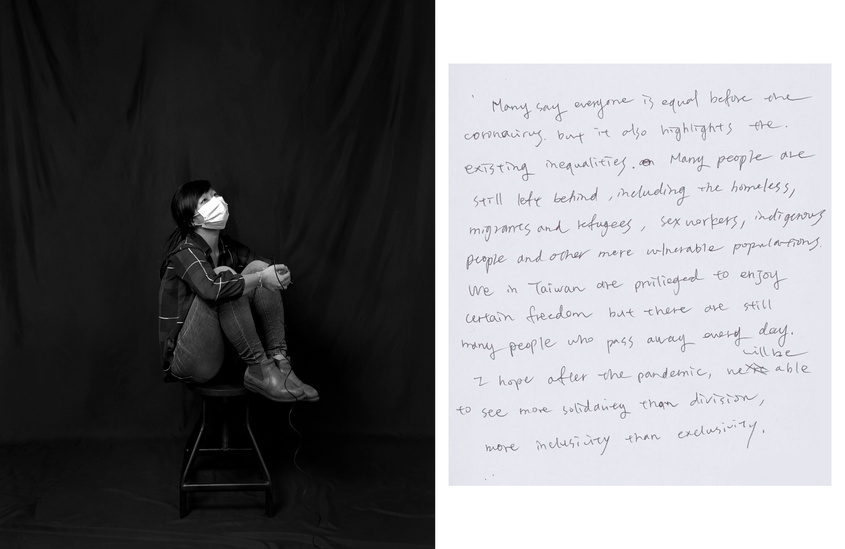 Many say everyone is equal before the
coronavirus. but it also highlights the.
existing inequalities. Many people are
still left behind, including the homeless,
migrants and refugees, sex workers, indigenous
people and other more vulnerable populations.
We in Taiwan are privilieged to enjoy
certain freedom but there are still
many people who pass away every day.
will be
I hope after the pandemic, we able
to see more solidarity than division,
more inclusivity than exclusivity.